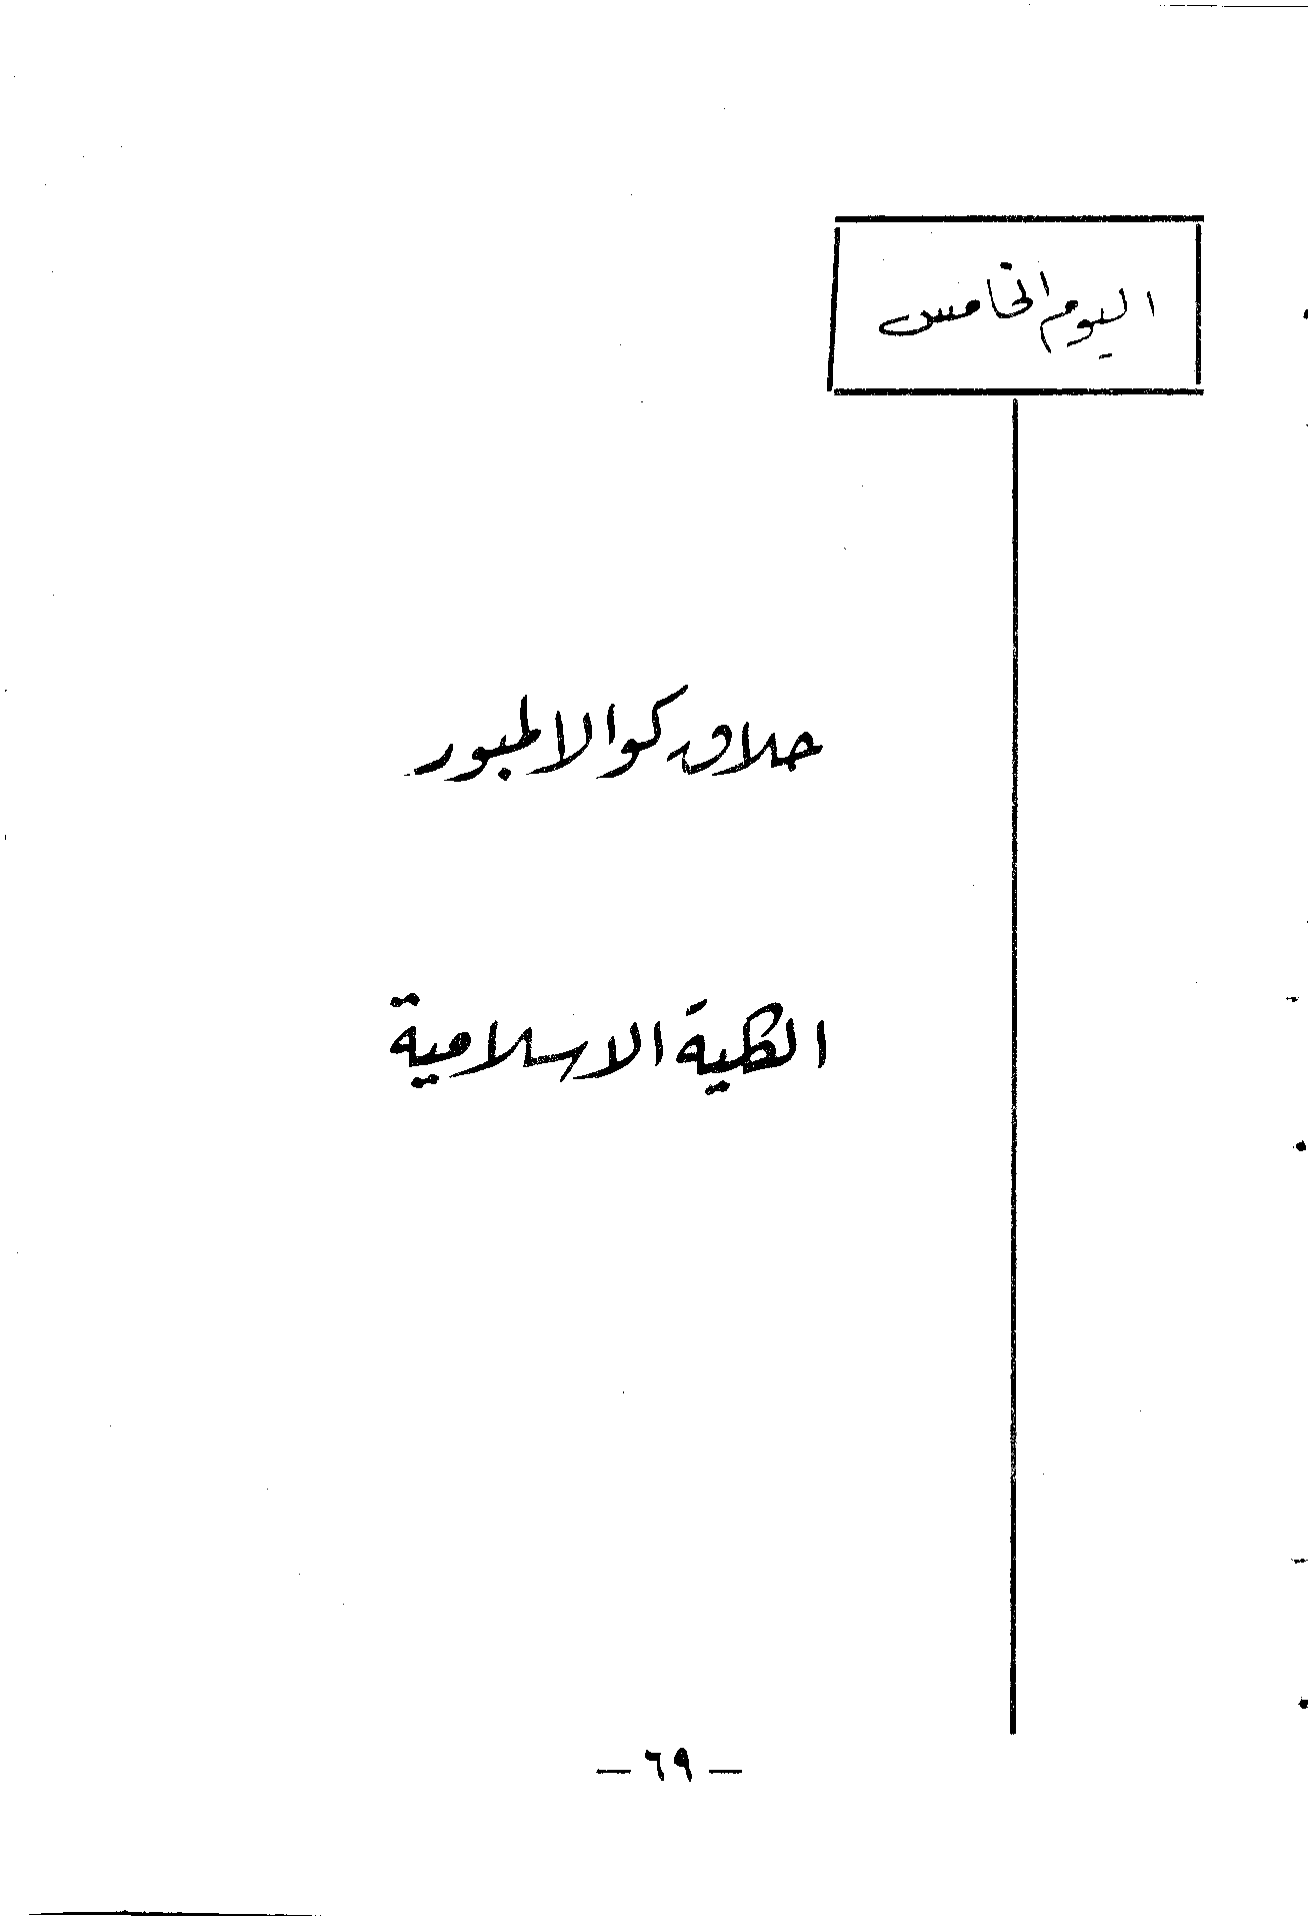 اليوم الخامس
حلاق كوالالمبور
الكلية الاسلامية
— ٦٩ —